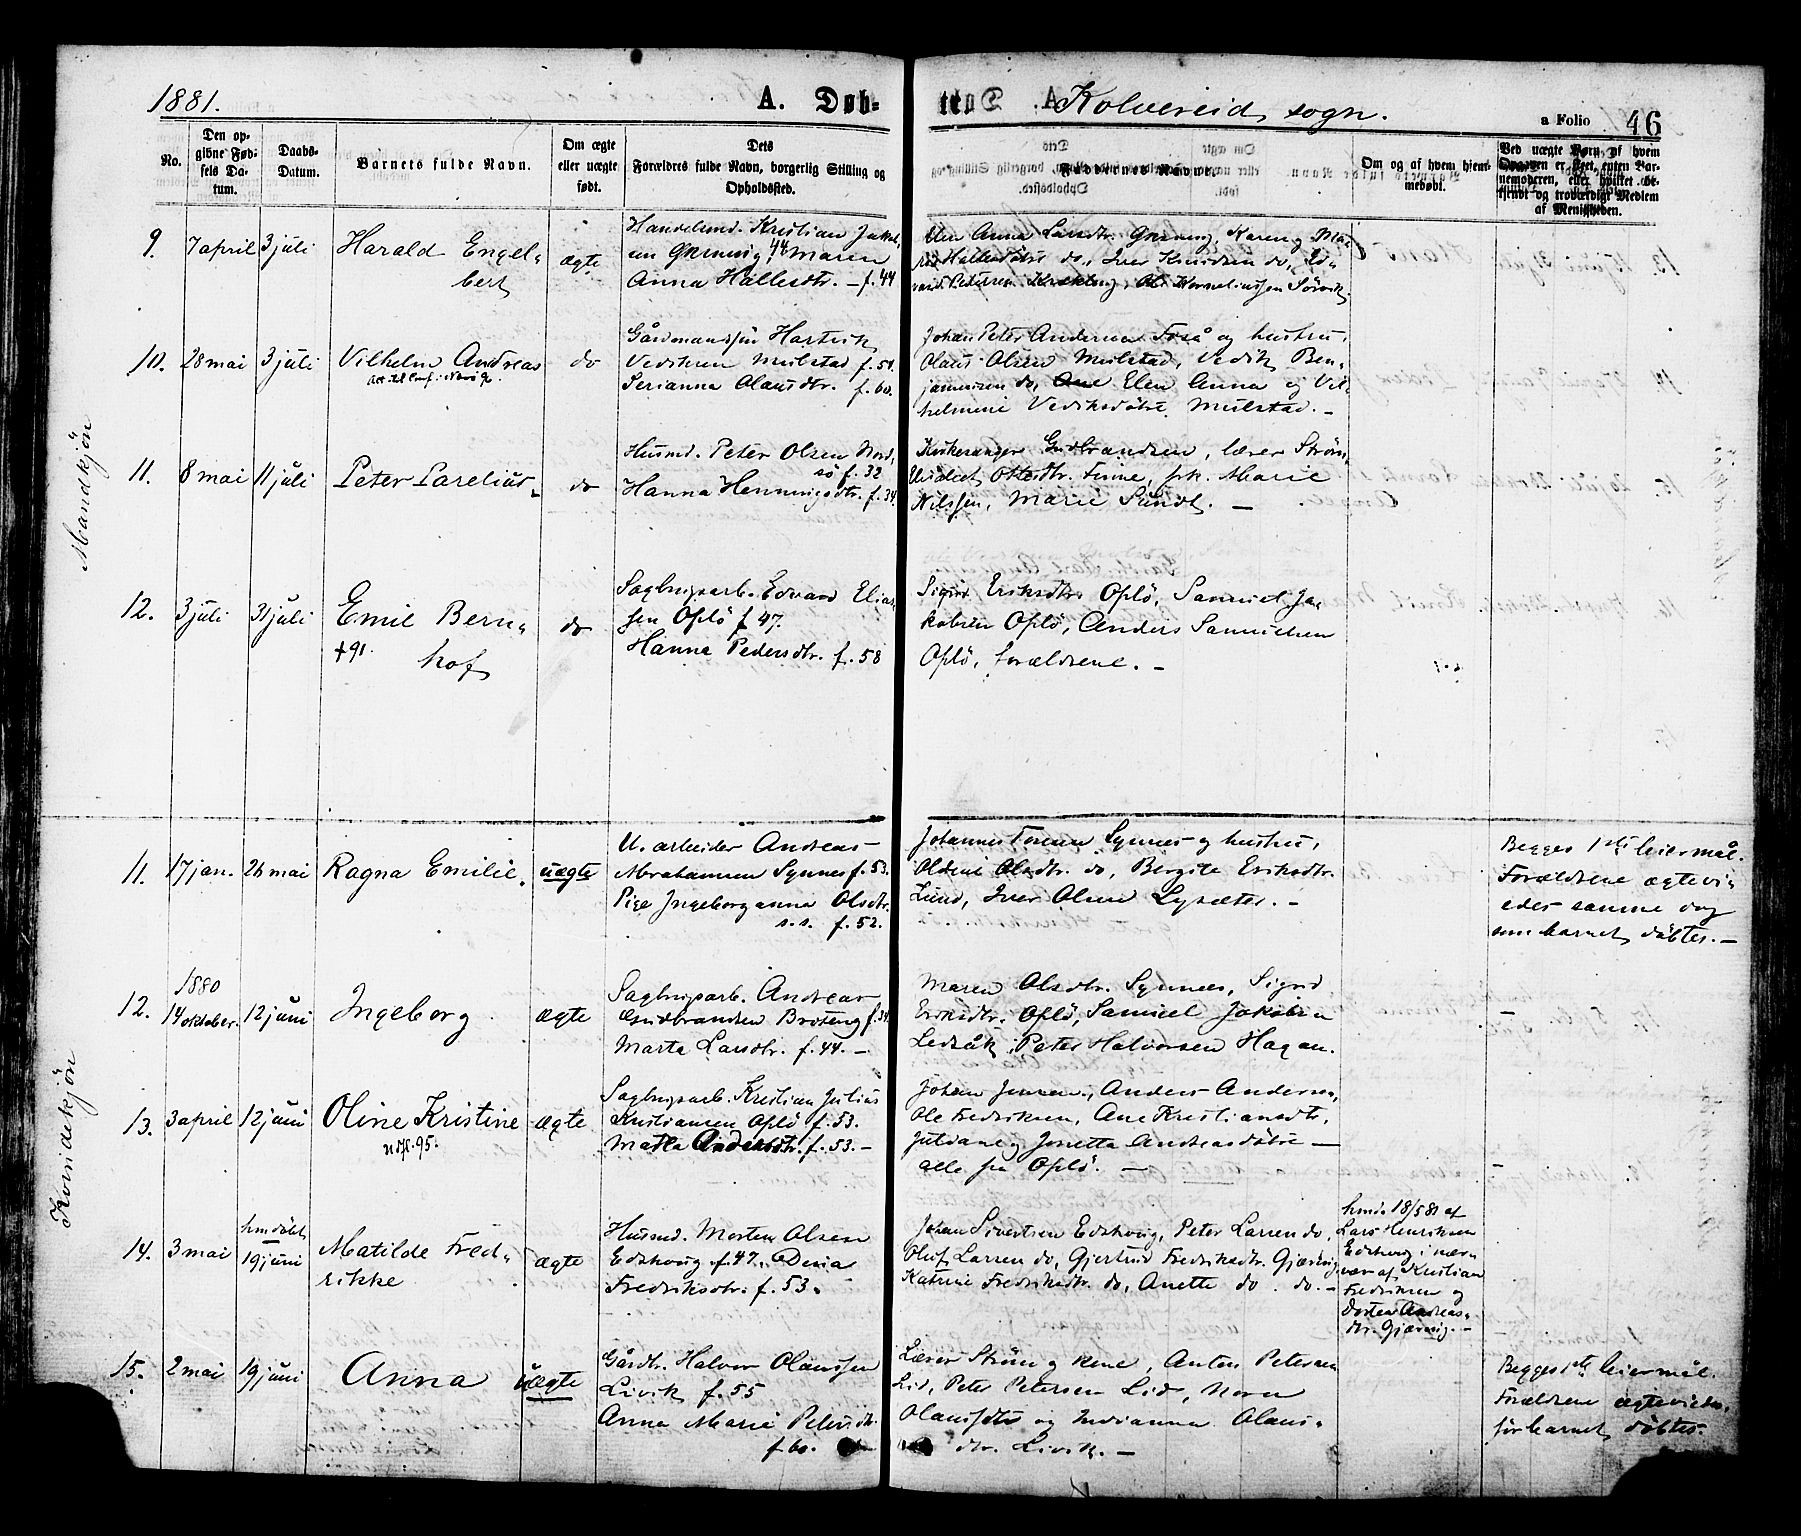 1881.
A. Døb-
Kolvereid sogn.
a Folio 46
No.
Den op-
givne Fød-
sels Da-
tum.
Daabs-
Datum.
Barnets fulde Navn.
Om ægte
eller uægte
født.
Dets
Forældres fulde Navn, borgerlig Stilling og
Opholdssted.
Faddernes Navne.
Om og af hvem hjem-
medøbt.
Ved uægte Børn af hvem
Opgaven er skeet, enten Bar-
nemoderen, eller hvilket be-
kjendt og troværdigt Medlem
af Menigheden.
Mandkjøn
9. 7 april 3 juli Harald Engel-
bert
ægte
Handelsmd. Kristian Jakob-
sen 44 Maren
Anna Hallesdtr. – f. 44
Anna Larsdtr. Karen og Ma-
Hallesdøtre do, Iver Knudsen do, Ed-
vard Pedersen Kornelius­sen Sørvik
10. 28 mai 3 juli Vilhelm Andreas
do
Gårdmandssøn Hartvik
Vediksen Mulstad f. 51.
Serianna Olausdtr. f. 60.
Johan Peter Andersen Foså og hustru,
Olaus Olsen Mulstad, Vedik Ben-
jaminsen do, Elen Anna og Vil-
helmine Vediksdøtre Mulstad. –
11. 8 mai 11 juli Peter Parelius
do
Husmd. Peter Olsen Nord-
sø f. 32
Hanna Henningsdtr. f. 34.
Kirkesanger Gudbrandsen, lærer Strøm,
Ottesdtr. Finne, frk. Marie
Nilssen, Marie Sundt. –
12. 3 juli 31 juli Emil Bern-
+91. hof
do
Sagbrugsarb. Edvard Elias-
sen Oplø f. 47.
Hanna Pedersdtr. f. 58
Sigrid Eriksdtr. Oplø, Samuel Ja-
kobsen Oplø, Anders Samuelsen
Oplø, forældrene. –
Kvindekjøn
11. 17 jan. 26 mai Ragna Emilie.
uægte
U. arbeider Andreas
Abrahamsen Synnes f. 53.
Pige Ingeborganna Olsdtr.
s.s. f. 52.
Johannes Synnes og hustru,
Oldine Olsdtr. do, Bergite Eriksdtr.
Lund, Iver Olsen Lysæter. –
Begges 1ste leiermål.
Forældrene ægtevi-
edes samme dag
som barnet døbtes. –
12. 1880
14 oktober. 12 juni Ingeborg
ægte
Sagbrugsarb. Andreas
Gudbrandsen Broteng f. 34.
Marta Larsdtr. f. 44. –
Maren Olsdtr. Synnes, Sigrid
Eriksdtr. Oplø, Samuel Jakobsen
Ledsåk, Peter Halvorsen Hagan.
13. 3 april 12 juni Oline Kristine
udfl. 95.
ægte
Sagbrugsarb. Kristian Julius
Kristiansen Oplø f. 53.
Andersdtr. f. 53. –
Johan Jensen, Anders Andersen,
Ole Fredriksen, Ane Kristiansdtr,
Julianne og Jonetta Andreasdøtre –
alle fra Oplø. –
14. 3 mai hmdøbt
19 juni Matilde Fred-
rikke
ægte
Husmd. Morten Olsen
Edshoug f. 47, Dina
Fredriksdtr. f. 53.
Johan Sivertsen Edshoug, Peter Larsen do,
Oluf Larsen do, Gjertrud Fredriksdtr. Gjærvig,
Katrine Fredriksdtr. do, Anette do. do. –
hmd. 18/5 81 af
Lars Henriksen
Edshoug i nær-
vær af Kristian
Fredriksen og
Dorten Andreas-
dtr. Gjærvig. –
15. 2 mai 19 juni Anna
uægte
Gårdbr. Halvor Olaussen
Livik f. 55
Anna Marie Petersdtr.
f. 60.
Lærer Strøm og kone, Anton Petersen
Lid, Peter Petersen Lid, Nora
Olausdtr. og Indianna Olaus-
dtr. Livik. –
Begges 1ste leiermål.
Forældrene ægteviedes
før barnet døbtes.